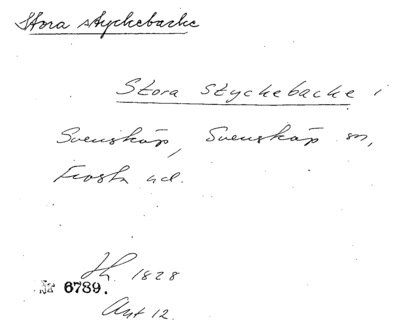 Stora styckebacke
Stora styckebacke i
Svensköp, Svensköp sn,
Frosta hd.
Sk. 1828
Nr 6789.
Akt 12.